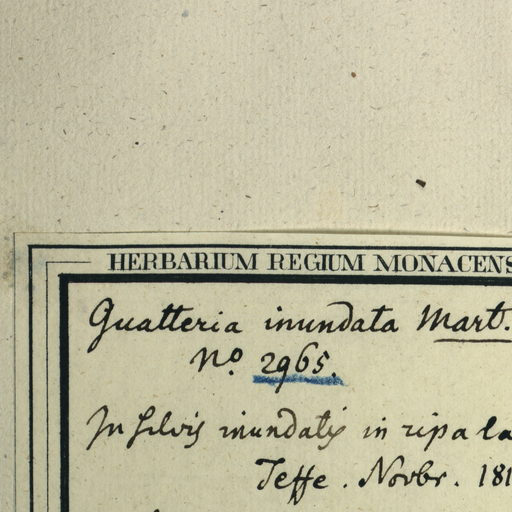 HERBARIUM REGIUM MONACENS
Guatteria inundata Mart.
No. 2965.
In silvis inundatis in ripa la
Teffe. Novbr. 181